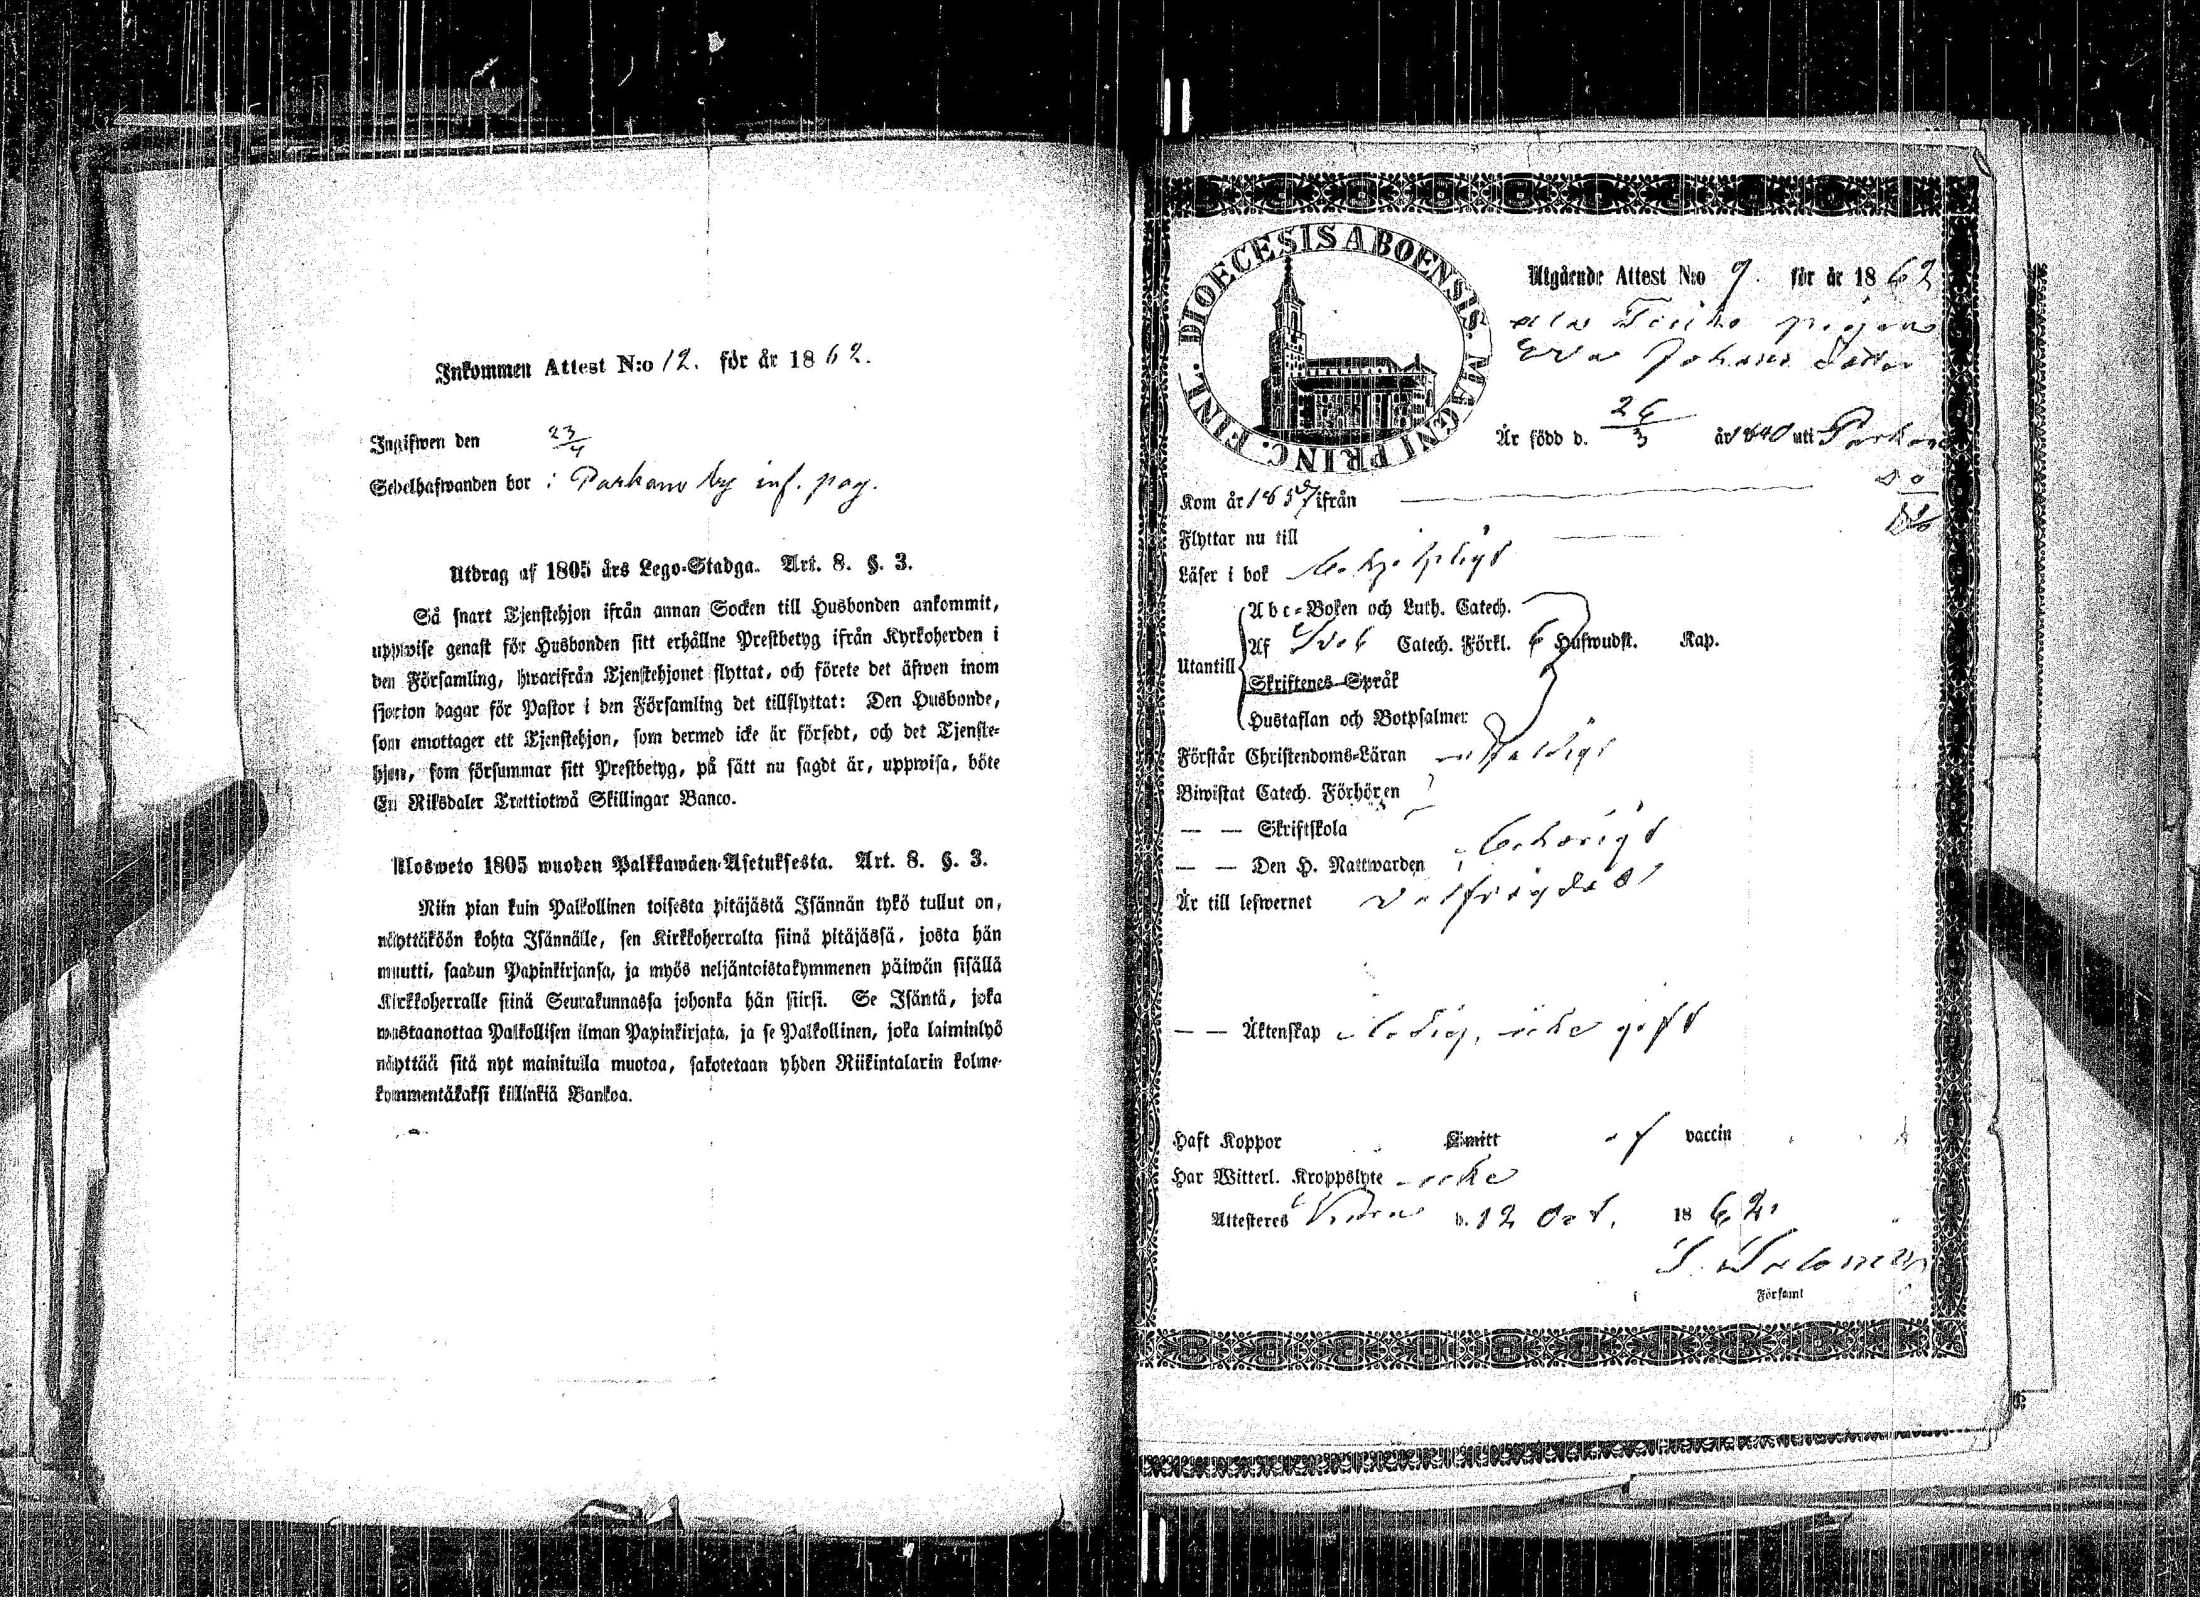 Inkommen Attest N:o 12. för år 1862.
Ingifwen den 23/4
Sedelhafwanden bor i Parkano by inf. pag.
Utdrag af 1805 års Lego-Stadga. Art. 8. §. 3.
Så snart Tjenstehjon ifrån annan Socken till Husbonden ankommit,
uppwise genast för Husbonden sitt erhållne Prestbetyg ifrån Kyrkoherden i
den Församling, hwarifrån Tjenstehjonet flyttat, och förete det äfwen inom
fjorton dagar för Pastor i den Församling det tillflyttat: Den Husbonde,
som emottager ett Tjenstehjon, som dermed icke är försedt, och det Tjenste-
hjon, som försummar sitt Prestbetyg, på sätt nu sagdt är, uppwisa, böte
En Riksdaler Trettiotwå Skillingar Banco.
Ulosweto 1805 wuoden Palkkawäen-Asetuksesta. Art. 8. §. 3.
Niin pian kuin Palkollinen toisesta pitäjästä Isännän tykö tullut on,
näyttäköön kohta Isännälle, sen Kirkkoherralta siinä pitäjässä, josta hän
muutti, saadun Papinkirjansa, ja myös neljäntoistakymmenen päiwän sisällä
Kirkkoherralle siinä Seurakunnassa johonka hän siirsi. Se Isäntä, joka
wastaanottaa Palkollisen ilman Papinkirjata, ja se Palkollinen, joka laiminlyö
näyttää sitä nyt mainitulla muotoa, sakotetaan yhden Riikintalarin kolme-
kymmentäkaksi killinkiä Bankoa.
DIOECESIS ABOENSIS. MAGNI PRINC. FINL.
Utgående Attest N:o 9. för år 1862
pigan
Eva Johans dotter
Är född d. 26/3 år 1840 uti Parkano
Kom år 1857 ifrån
Flyttar nu till
Läser i bok
Utantill
Abc-Boken och Luth. Catech.
Af Sveb Catech. Förkl. 6 Hufwudst. Kap.
Skriftenes Språk
Hustaflan och Botpsalmer
Förstår Christendoms-Läran
Biwistat Catech. Förhören
— — Skriftskola
— — Den H. Nattwarden behörigt
Är till lefwernet välfrägdad
— — Äktenskap ledig, icke gift
Haft Koppor Limitt af vaccin
Har Witterl. Kroppslyte icke
Attesteres d. 12 Oct. 1862.
i Förfaml